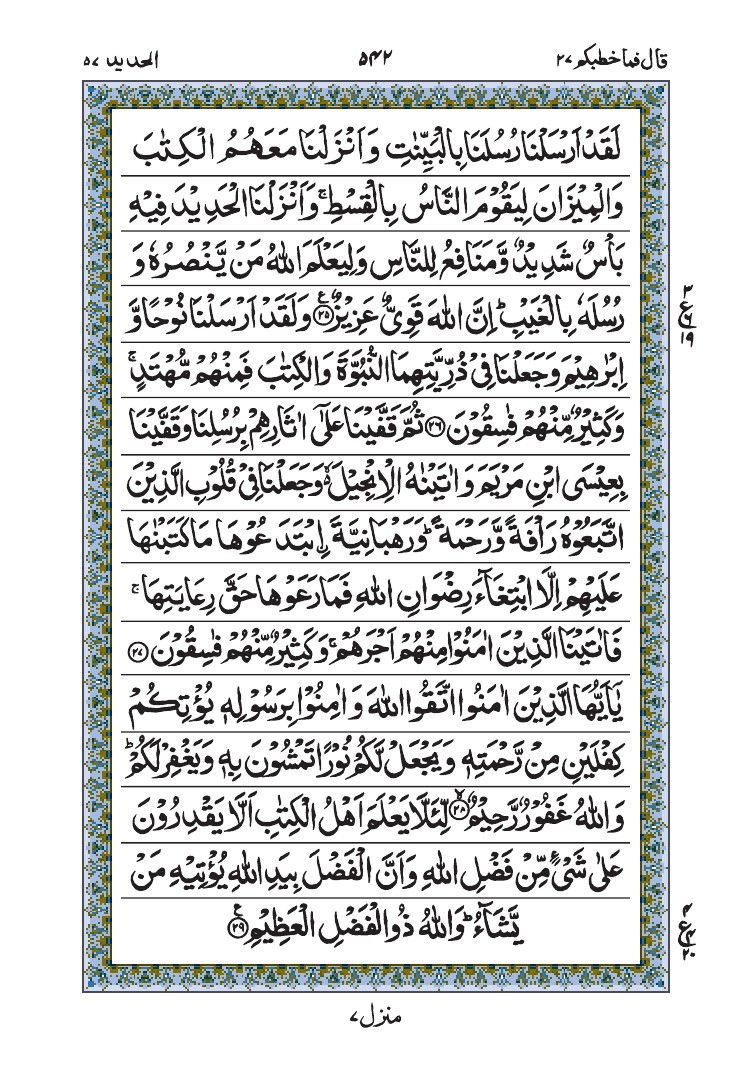 قال فما خطبکم ٢٧ ۵۴۲ الحدید ۵۷
لَقَدْ اَرْسَلْنَا رُسُلَنَا بِالْبَیِّنٰتِ وَ اَنْزَلْنَا مَعَهُمُ الْكِتٰبَ
وَالْمِیْزَانَ لِیَقُوْمَ النَّاسُ بِالْقِسْطِ ۚ وَاَنْزَلْنَا الْحَدِیْدَ فِیْهِ
بَاْسٌ شَدِیْدٌ وَّمَنَافِعُ لِلنَّاسِ وَلِیَعْلَمَ اللّٰهُ مَنْ یَّنْصُرُهٗ وَ
رُسُلَهٗ بِالْغَیْبِ ؕ اِنَّ اللّٰهَ قَوِیٌّ عَزِیْزٌ ﴿۲۵﴾ وَلَقَدْ اَرْسَلْنَا نُوْحًا وَّ
٢ ع ٦ ١٩
اِبْرٰهِیْمَ وَجَعَلْنَا فِیْ ذُرِّیَّتِهِمَا النُّبُوَّةَ وَالْكِتٰبَ فَمِنْهُمْ مُّهْتَدٍ ۚ
وَكَثِیْرٌ مِّنْهُمْ فٰسِقُوْنَ ﴿۲۶﴾ ثُمَّ قَفَّیْنَا عَلٰۤی اٰثَارِهِمْ بِرُسُلِنَا وَقَفَّیْنَا
بِعِیْسَی ابْنِ مَرْیَمَ وَ اٰتَیْنٰهُ الْاِنْجِیْلَ ۙ۬ وَجَعَلْنَا فِیْ قُلُوْبِ الَّذِیْنَ
اتَّبَعُوْهُ رَاْفَةً وَّرَحْمَةً ؕ وَرَهْبَانِیَّةَ اۨبْتَدَعُوْهَا مَا كَتَبْنٰهَا
عَلَیْهِمْ اِلَّا ابْتِغَآءَ رِضْوَانِ اللّٰهِ فَمَا رَعَوْهَا حَقَّ رِعَایَتِهَا ۚ
فَاٰتَیْنَا الَّذِیْنَ اٰمَنُوْا مِنْهُمْ اَجْرَهُمْ ۚ وَكَثِیْرٌ مِّنْهُمْ فٰسِقُوْنَ ﴿۲۷﴾
یٰۤاَیُّهَا الَّذِیْنَ اٰمَنُوا اتَّقُوا اللّٰهَ وَ اٰمِنُوْا بِرَسُوْلِهٖ یُؤْتِكُمْ
كِفْلَیْنِ مِنْ رَّحْمَتِهٖ وَیَجْعَلْ لَّكُمْ نُوْرًا تَمْشُوْنَ بِهٖ وَیَغْفِرْ لَكُمْ ؕ
وَاللّٰهُ غَفُوْرٌ رَّحِیْمٌ ﴿۲۸﴾ لِّئَلَّا یَعْلَمَ اَهْلُ الْكِتٰبِ اَلَّا یَقْدِرُوْنَ
عَلٰی شَیْءٍ مِّنْ فَضْلِ اللّٰهِ وَاَنَّ الْفَضْلَ بِیَدِ اللّٰهِ یُؤْتِیْهِ مَنْ
یَّشَآءُ ؕ وَاللّٰهُ ذُو الْفَضْلِ الْعَظِیْمِ ﴿۲۹﴾
۴ ع ۴ ۲۰
منزل ۷